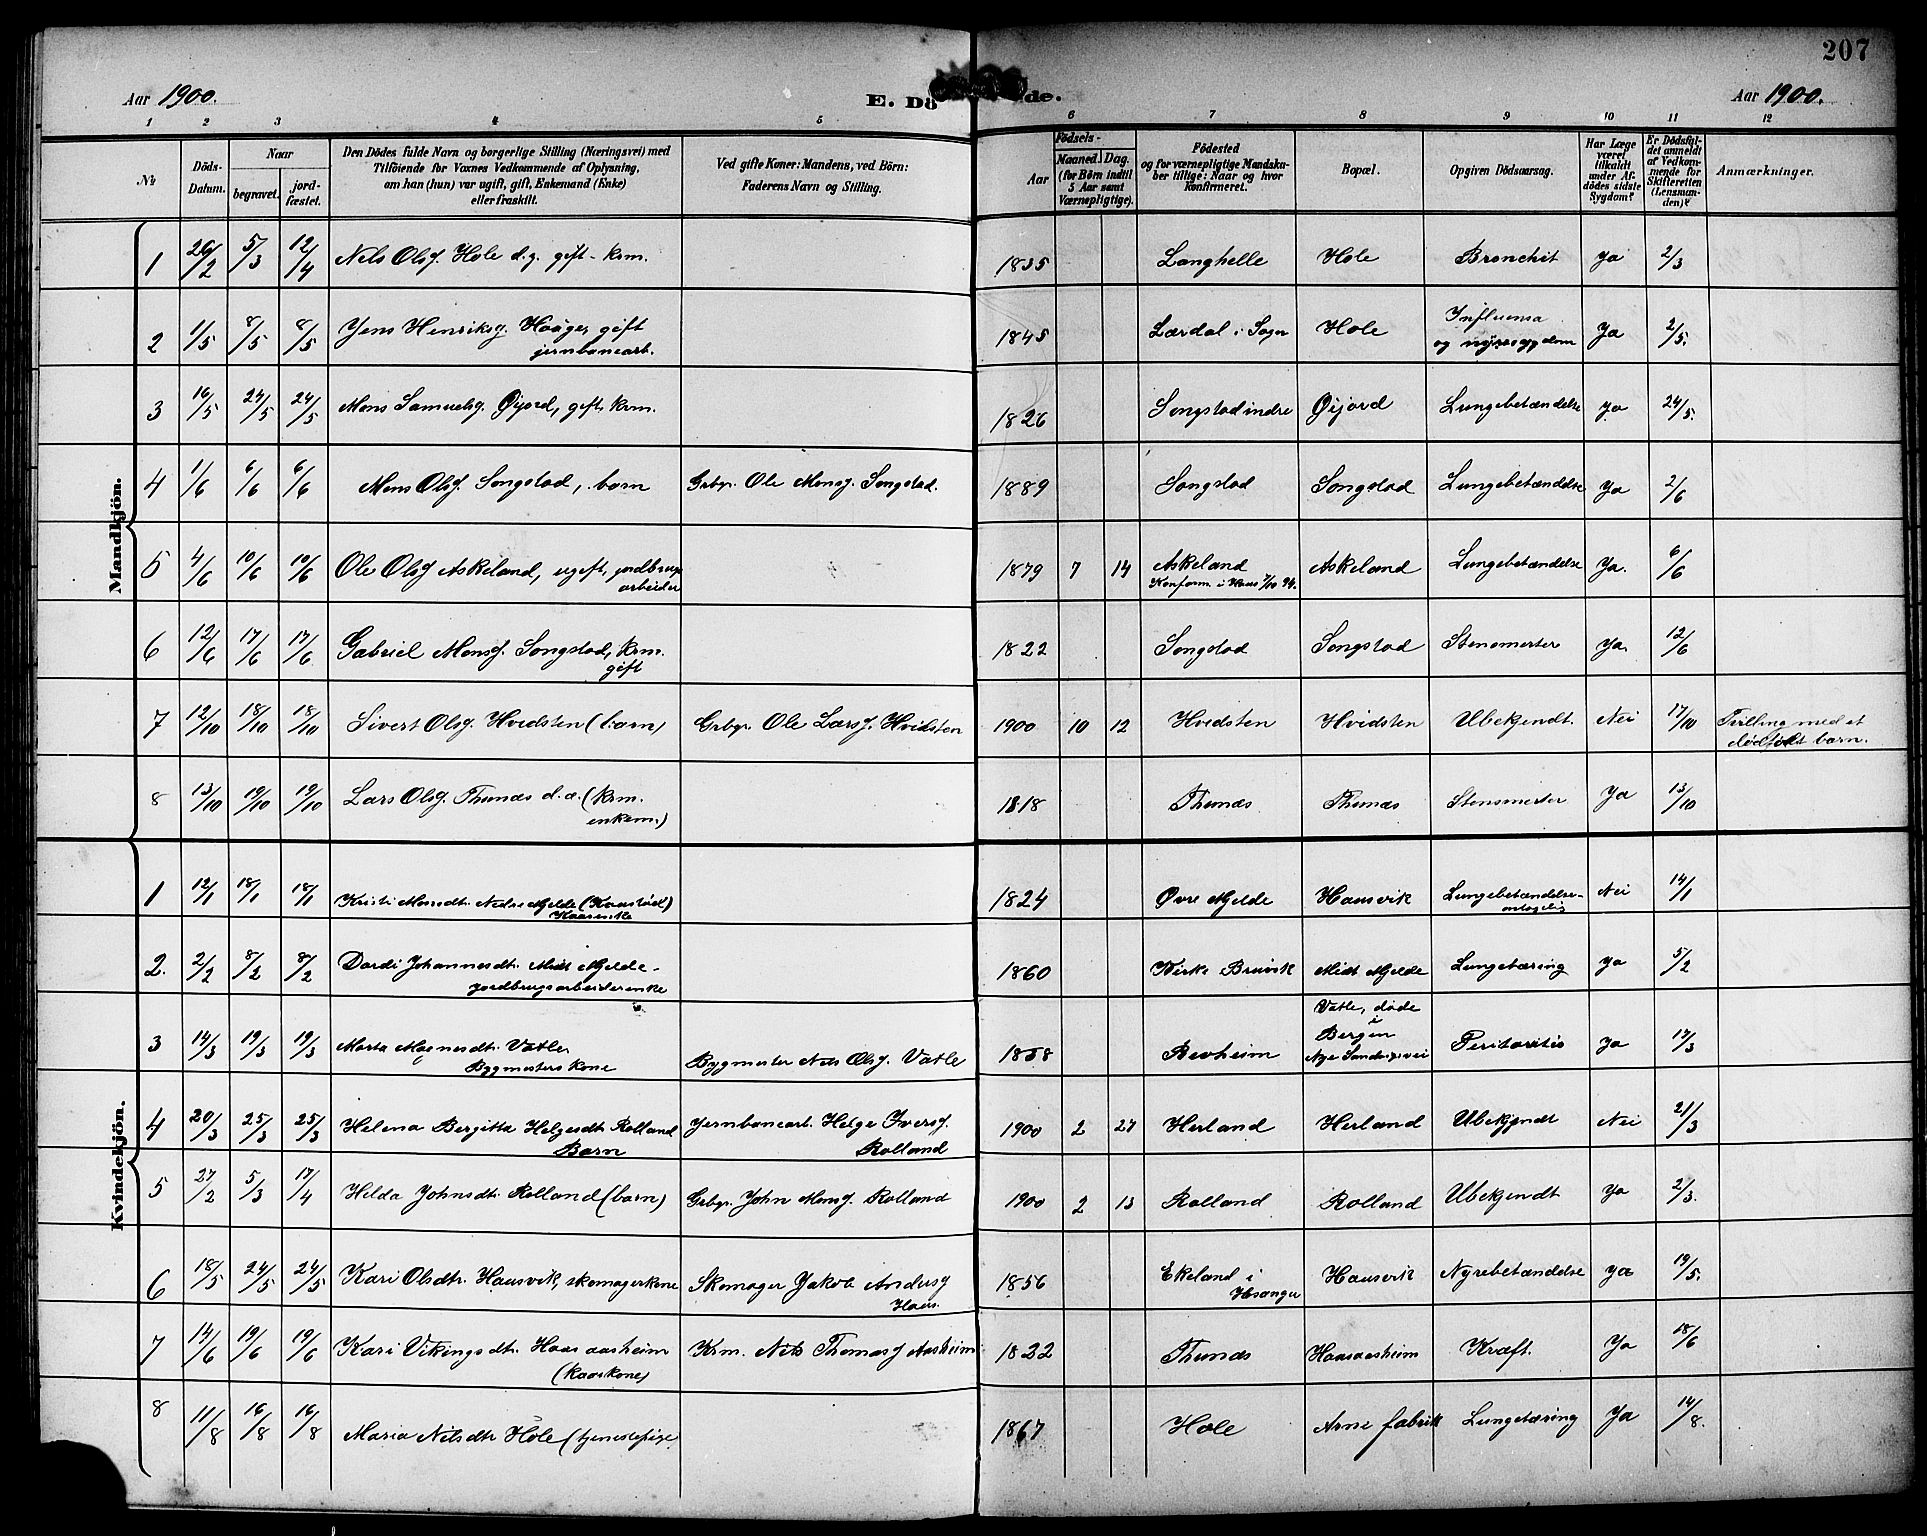 207
Aar 1900. E. Dö de. Aar 1900.
1 2 3 4 5 6 7 8 9 10 11 12
№
Döds-Datum.
Naar
begravet.
jord-fæstet.
Den Dödes fulde Navn og borgerlige Stilling (Næringsvei) med
Tilföiende for Voxnes Vedkommende af Oplysning,
om han (hun) var ugift, gift, Enkemand (Enke)
eller fraskilt.
Ved gifte Koner: Mandens, ved Börn:
Faderens Navn og Stilling.
Aar
Födsels-
Maaned. Dag.
(for Börn indtil
5 Aar samt
Værnepligtige).
Födested
og for værnepligtige Mandska-
ber tillige: Naar og hvor
Konfirmeret.
Bopæl.
Opgiven Dödsaarsag.
Har Læge
været
tilkaldt
under Af-
dödes sidste
Sygdom?
Er Dödsfal-
det anmeldt
af Vedkom-
mende for
Skifteretten
(Lensman-
den)?
Anmærkninger.
Mandkjön.
1 26/2 5/3 12/4 Nels Olsg. Hole d.y. gift - krm. 1835 Langhelle Hole Bronchit ja 2/3
2 1/5 8/5 8/5 Jens Henriksg. Hauge, gift 1845 Lærdal i Sogn Hole Influensa Ja 2/5.
jernbanearb. og nyresygdom
3 16/5 24/5 24/5 Mons Samuelsg. Øijord, gift, krm. 1826 Songstad indre Øijord Lungebetændelse Ja 24/5.
4 1/6 6/6 6/6 Mons Olsg. Songstad, barn Grbgr. Ole Monsg. Songstad. 1889 Songstad Songstad Lungebetændelse Ja 2/6
5 4/6 10/6 10/6 Ole Olsg Askeland, ugift, jordbrugs 1879 7 14 Askeland Askeland Lungebetændelse Ja. 6/6
arbeider Konfirm. i Haus 7/10 94.
6 12/6 17/6 17/6 Gabriel Monsg. Songstad, krm. 1822 Songstad Songstad Stensmerter Ja. 12/6
gift
7 12/10 18/10 18/10 Sivert Olsg. Hvidsten (barn) Grbgr. Ole Larsg. Hvidsten 1900 10 12 Hvidsten Hvidsten Ubekjendt Nei 17/10 Tvilling med et
dødfødt barn.
8 13/10 19/10 19/10 Lars Olsg. Thunæs d.æ. (krm. 1818 Thunæs Thunæs Stensmerter Ja 13/10
enkem.)
Kvindekjön.
1 12/1 18/1 18/1 Kristi Monsdt. Nedre Mjelde (Haustøid) 1824 Øvre Mjelde Hausvik Lungebetændelse Nei 14/1
Kaarenke antagelig
2. 2/2 8/2 8/2 Dordi Johannesdt. Midt Mjelde. 1860 Kirke Bruvik Midt Mjelde Lungetæring Ja 5/2
jordbrugsarbeiderenke
3 14/3 19/3 19/3 Marta Magnesdt. Vatle Bygmester Nils Olsg. Vatle 1858 Bevheim Vatle, døde i Bergen Peritoritis Ja 17/3
Bygmesters kone Nye Sandvigsvei
4 20/3 25/3 25/3 Helena Bergitta Helgesdt. Rolland Jernbanearb. Helge Iversg. 1900 2 27 Herland Herland Ubekjendt Nei 21/3
Barn Rolland
5 27/2 5/3 17/4 Hilda Johnsdt. Rolland (barn) Grbgr. John Monsg. Rolland 1900 2 13 Rolland Rolland Ubekjendt Ja 2/3.
6 18/5 24/5 24/5 Kari Olsdtr. Hausvik, skomagerkone Skomager Jakob Andersg 1856 Ekeland i Hausvik Nyrebetændelse ja 19/5.
Haus. Hosanger
7 14/6 19/6 19/6 Kari Vikingsdt. Haus aasheim Krm. Nils Thomasg Aasheim 1822 Thunæs Hausaasheim Kræft. Ja 18/6
(kaarkone)
8 11/8 16/8 16/8 Maria Nilsdtr Hole (tjenestepige 1867 Hole Arne fabrik Lungetæring Ja 14/8.